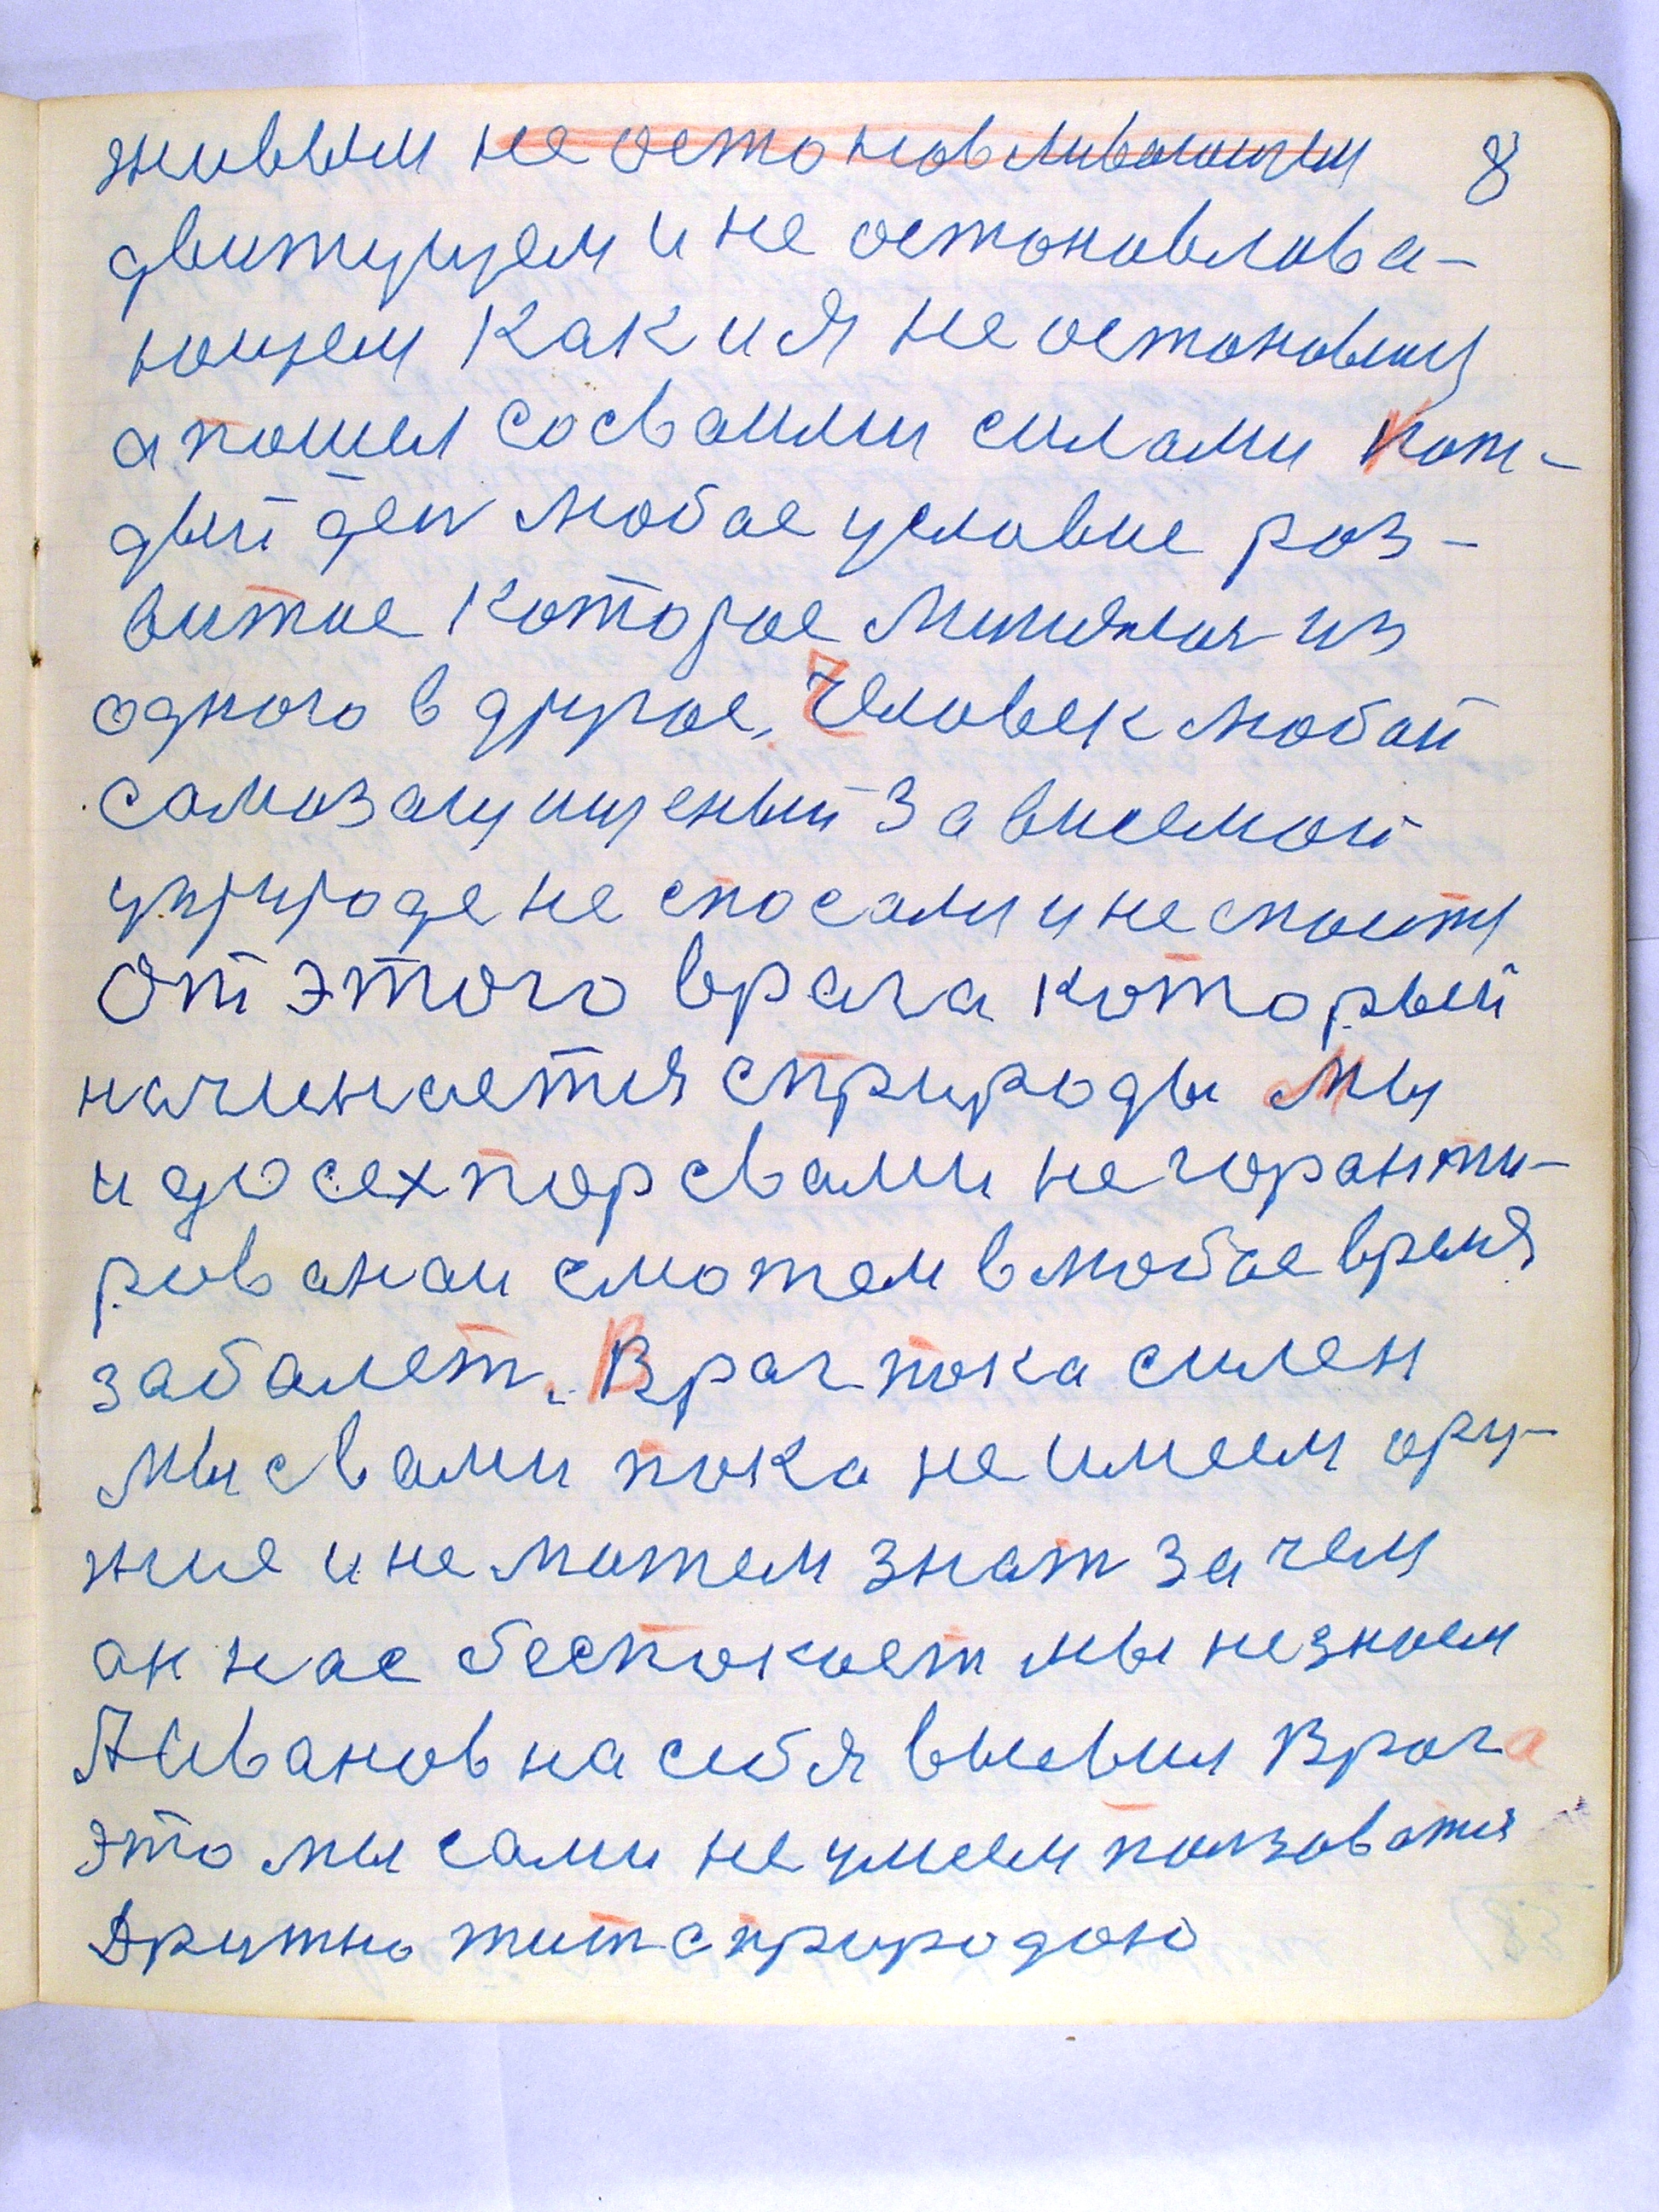 живым не остоновливоющем 8
движущем и не остоновлова-
ющем Как и я не остоновлись
а пошел со своими силами Каж-
дый ден любое условие роз-
витие Которое Минялос из
одного в другое. Человек любой
самозащищеный Зависемой
у природе не спосали и не споситы
От этого врага который
начинается с природы Мы
и до сех пор свами не горанти-
рованаи сможем в любое время
заболет. Враг пока силен
Мы свами пока не имеем ору-
жие и не можем знат за чем
он нас беспокоет мы не знаем
А Иванов на себя выевил Врага
это мы сами не умеем ползоватия
Дружно жит с природою